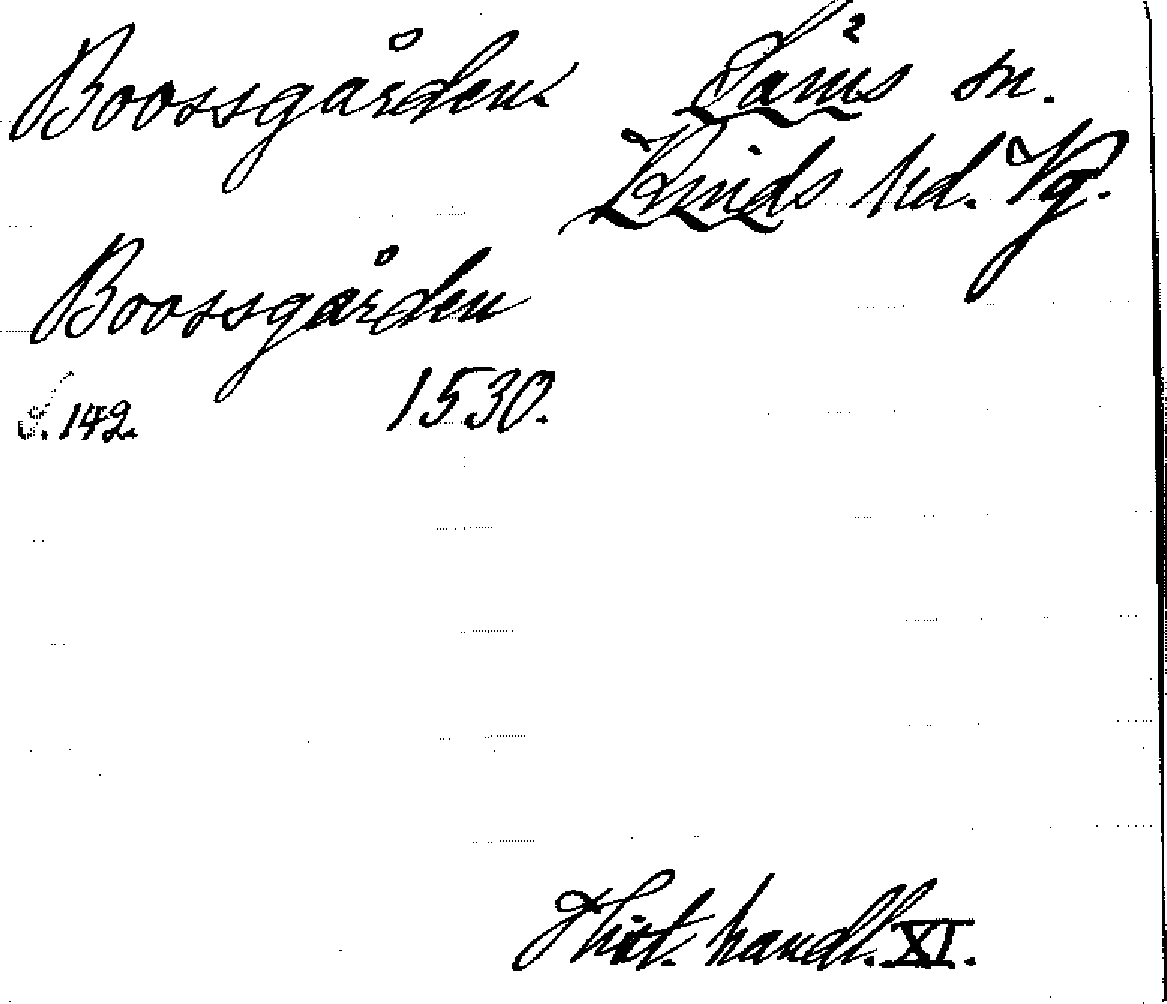 Boossgården. Säms sn.
Kinds hd. Vg.
Boossgården
S. 142. 1530.
Hist. handl. XI.